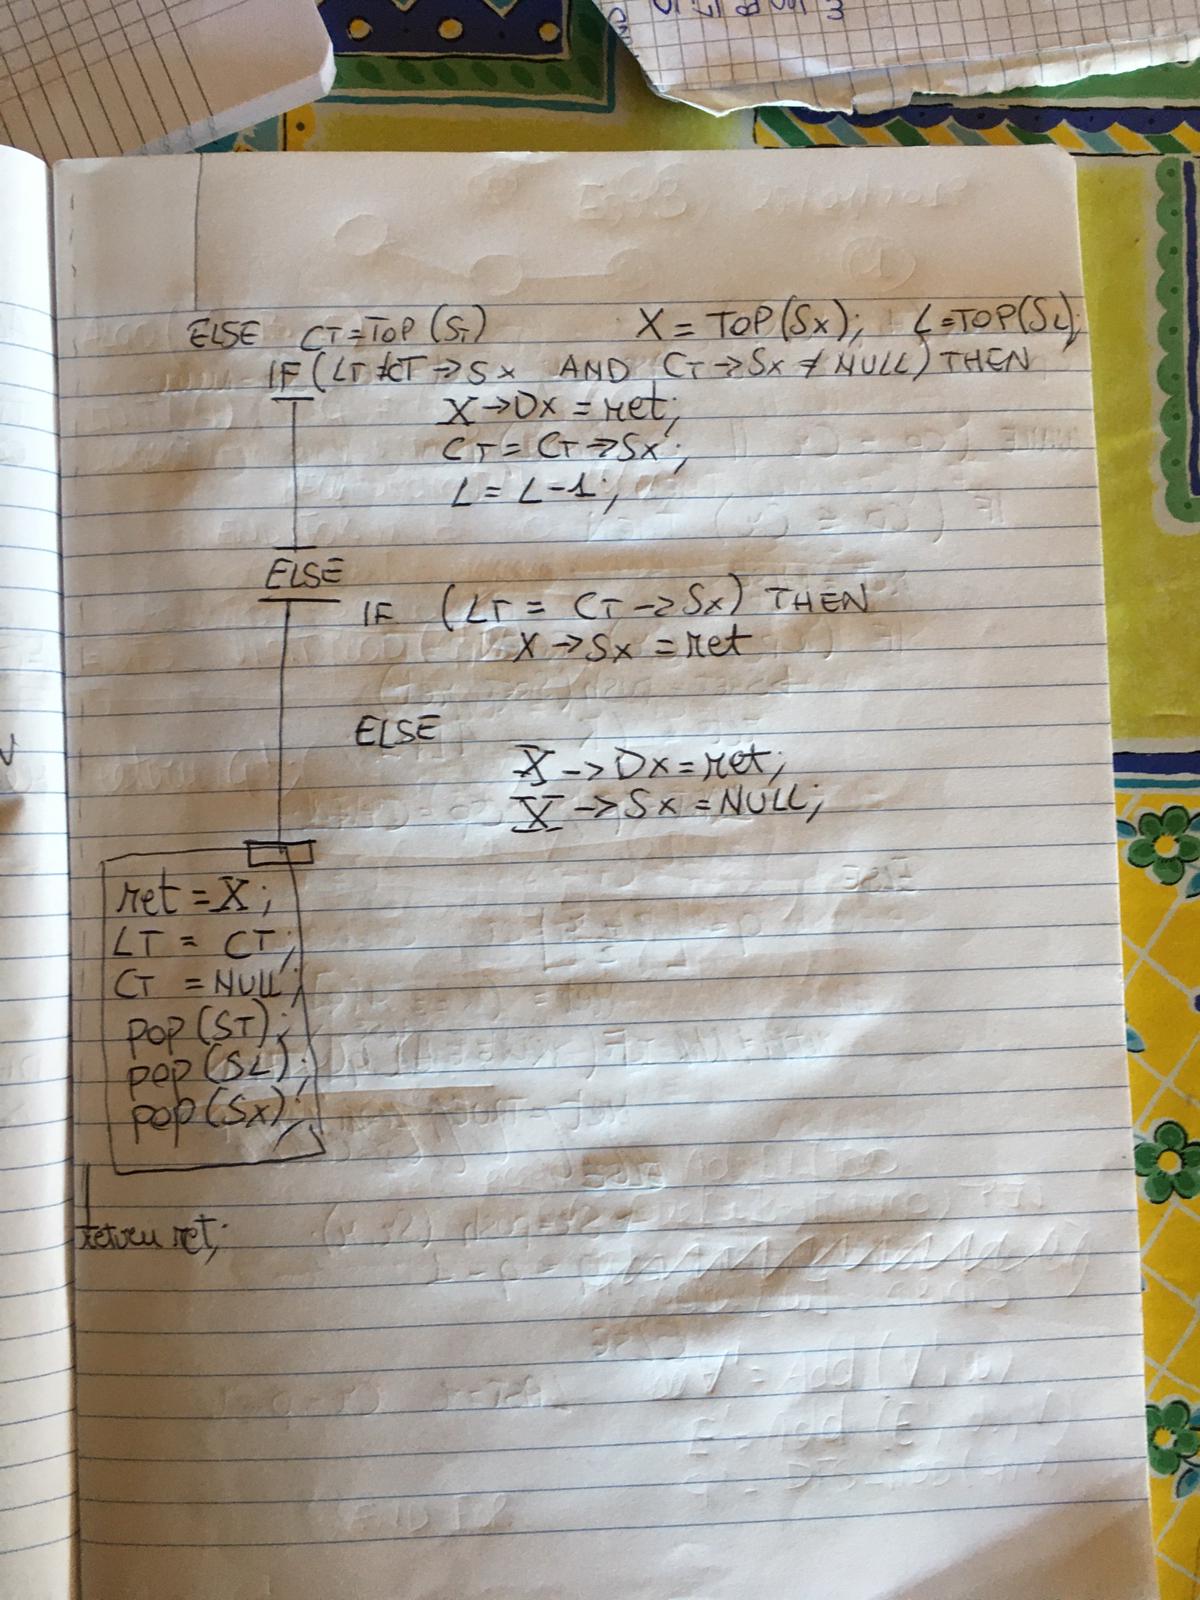 ELSE CT=TOP(ST) X = TOP(Sx); L=TOP(SL);
IF (LT≠CT→Sx AND CT→Sx ≠ NULL) THEN
X→Dx = ret;
CT = CT→Sx;
L = L-1;
ELSE
IF (LT = CT→Sx) THEN
X→Sx = ret
ELSE
X→Dx = ret;
X→Sx = NULL;
ret = X;
LT = CT;
CT = NULL;
pop(ST);
pop(SL);
pop(Sx);
ret;